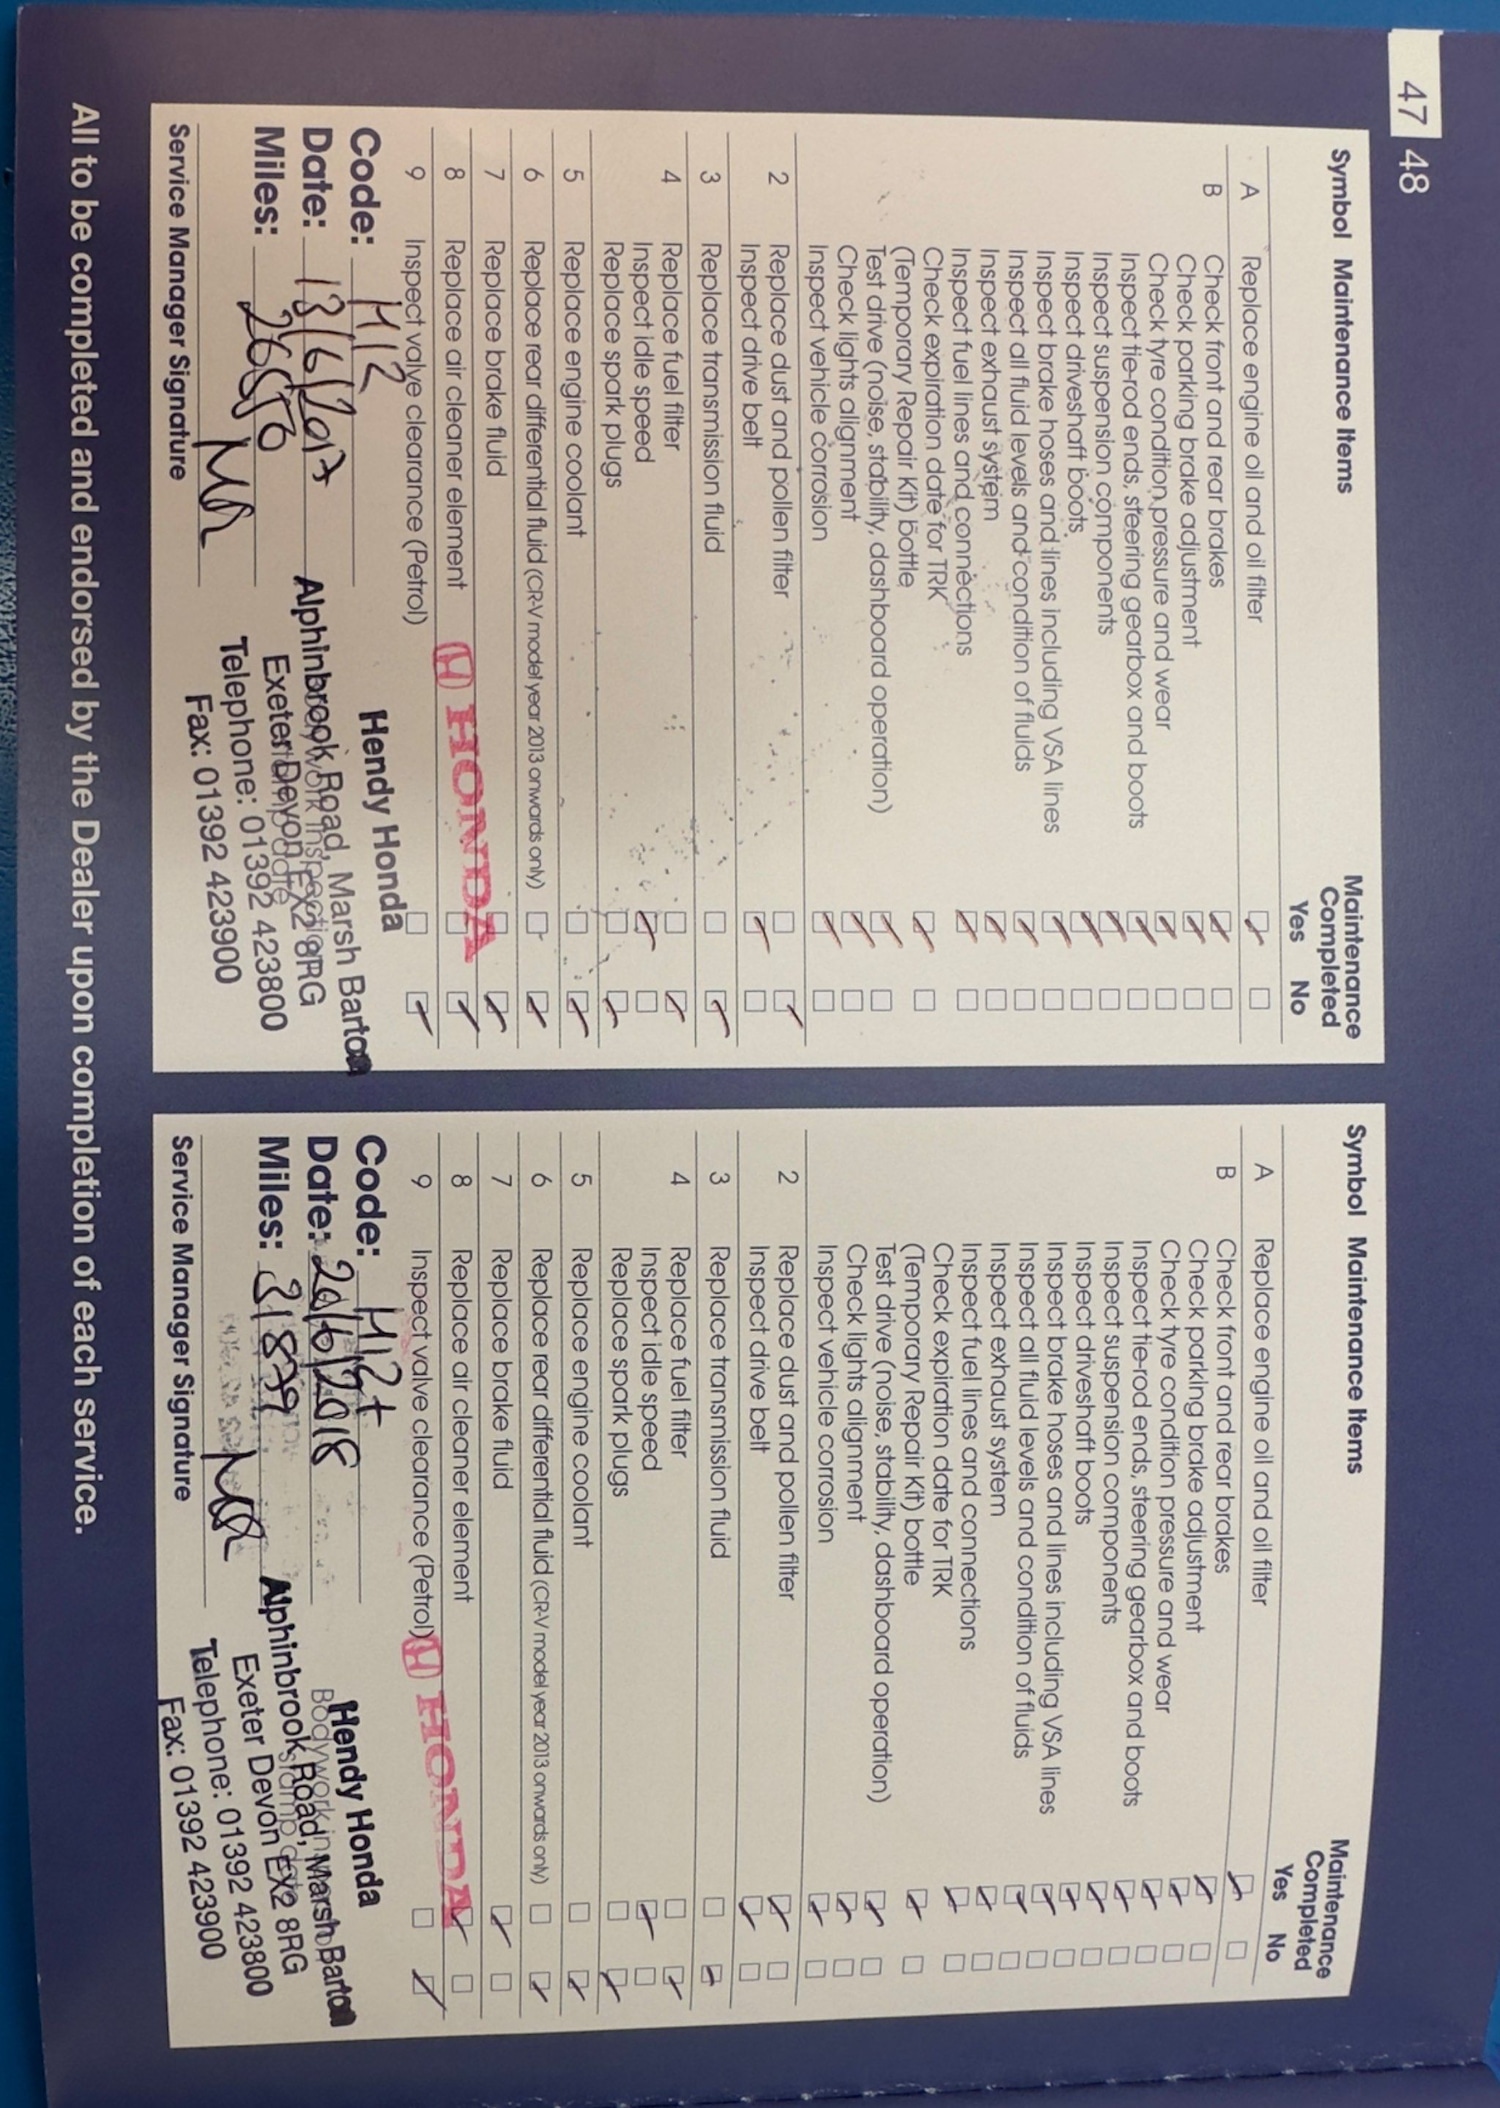 47 48
Symbol Maintenance Items
Maintenance
Completed
Yes No
A Replace engine oil and oil filter
B Check front and rear brakes
Check parking brake adjustment
Check tyre condition, pressure and wear
Inspect tie-rod ends, steering gearbox and boots
Inspect suspension components
Inspect driveshaft boots
Inspect brake hoses and lines including VSA lines
Inspect all fluid levels and condition of fluids
Inspect exhaust system
Inspect fuel lines and connections
Check expiration date for TRK
(Temporary Repair Kit) bottle
Test drive (noise, stability, dashboard operation)
Check lights alignment
Inspect vehicle corrosion
2 Replace dust and pollen filter
Inspect drive belt
3 Replace transmission fluid
4 Replace fuel filter
Inspect idle speed
Replace spark plugs
5 Replace engine coolant
6 Replace rear differential fluid (CR-V model year 2013 onwards only)
7 Replace brake fluid
8 Replace air cleaner element
9 Inspect valve clearance (Petrol)
HONDA
Code: M12
Date: 13/6/2017
Miles: 26580
Service Manager Signature
Hendy Honda
Alphinbrook Road, Marsh Barton
Exeter Devon EX2 8RG
Telephone: 01392 423800
Fax: 01392 423900
Symbol Maintenance Items
Maintenance
Completed
Yes No
A Replace engine oil and oil filter
B Check front and rear brakes
Check parking brake adjustment
Check tyre condition pressure and wear
Inspect tie-rod ends, steering gearbox and boots
Inspect suspension components
Inspect driveshaft boots
Inspect brake hoses and lines including VSA lines
Inspect all fluid levels and condition of fluids
Inspect exhaust system
Inspect fuel lines and connections
Check expiration date for TRK
(Temporary Repair Kit) bottle
Test drive (noise, stability, dashboard operation)
Check lights alignment
Inspect vehicle corrosion
2 Replace dust and pollen filter
Inspect drive belt
3 Replace transmission fluid
4 Replace fuel filter
Inspect idle speed
Replace spark plugs
5 Replace engine coolant
6 Replace rear differential fluid (CR-V model year 2013 onwards only)
7 Replace brake fluid
8 Replace air cleaner element
9 Inspect valve clearance (Petrol)
HONDA
Code: M127
Date: 20/6/2018
Miles: 31879
Service Manager Signature
Hendy Honda
Alphinbrook Road, Marsh Barton
Exeter Devon EX2 8RG
Telephone: 01392 423800
Fax: 01392 423900
All to be completed and endorsed by the Dealer upon completion of each service.